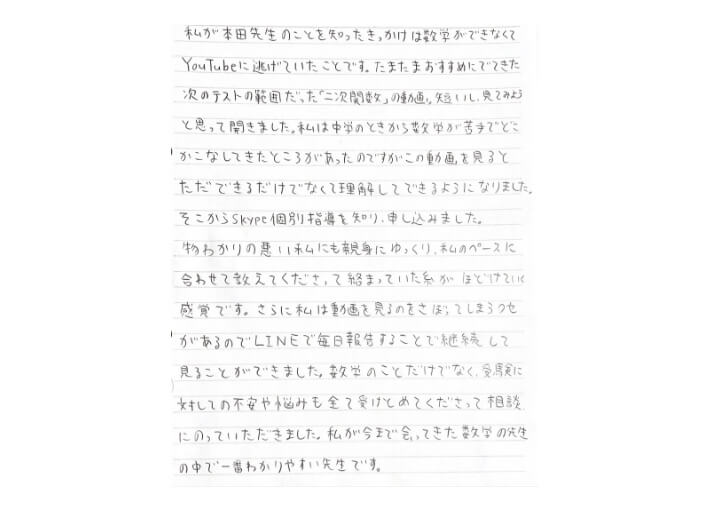 私が本田先生のことを知ったきっかけは数学ができなくて
YouTubeに逃げていたことです。たまたまおすすめにでてきた
次のテストの範囲だった「二次関数」の動画。短いし、見てみよう
と思って開きました。私は中学のときから数学が苦手でどこ
かこなしてきたところがあったのですがこの動画を見ると
ただできるだけでなくて理解してできるようになりました。
そこからSkype個別指導を知り、申し込みました。
物わかりの悪い私にも親身にゆっくり、私のペースに
合わせて教えてくださって絡まっていた糸がほどけていく
感覚です。さらに私は動画を見るのをさぼってしまうクセ
があるのでLINEで毎日報告することで継続して
見ることができました。数学のことだけでなく、受験に
対しての不安や悩みも全て受けとめてくださって相談
にのっていただきました。私が今まで会ってきた数学の先生
の中で一番わかりやすい先生です。